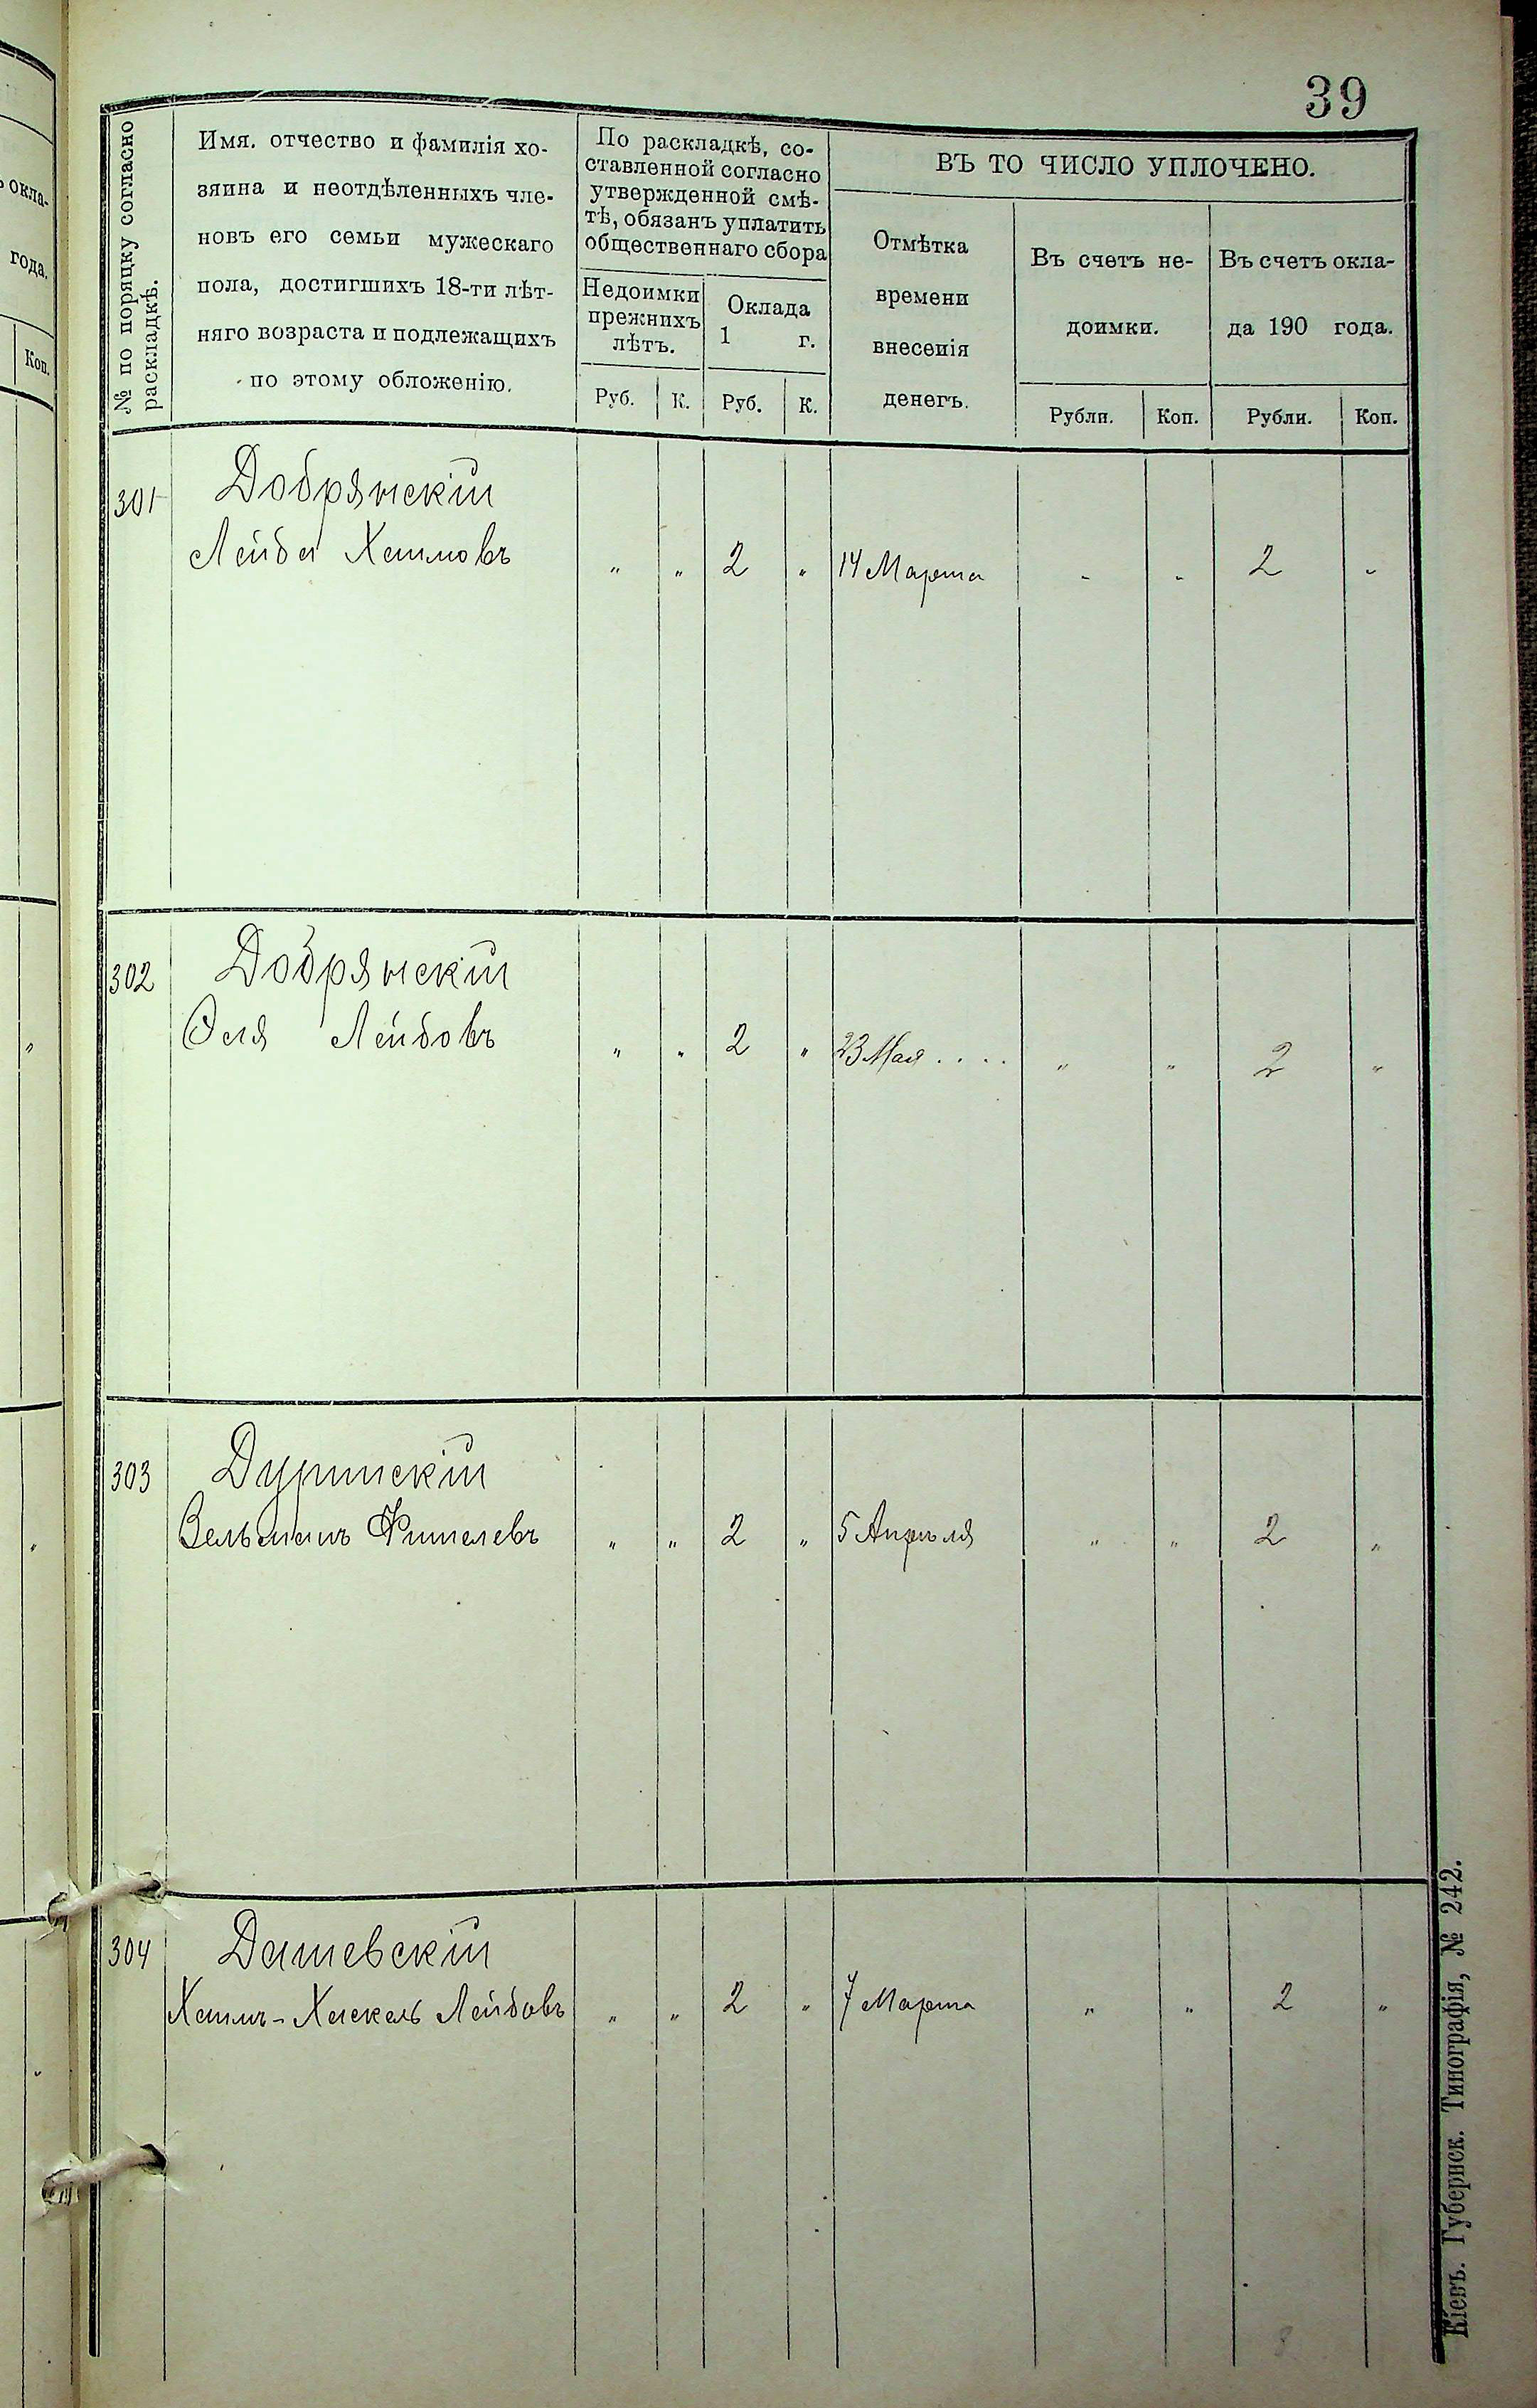 39
№ по поряцку согласно
раскладкѣ.
Имя. отчество и фамилія хо-
зяина и неотдѣленныхъ чле-
новъ его семьи мужескаго
пола, достигшихъ 18-ти лѣт-
няго возраста и подлежащихъ
по этому обложенію.
По раскладкѣ, со-
ставленной согласно
утвержденной смѣ-
тѣ, обязанъ уплатить
общественнаго сбора
Недоимки
прежнихъ
лѣтъ.
Оклада
1 г.
Руб. К. Руб. К.
ВЪ ТО ЧИСЛО УПЛОЧЕНО.
Отмѣтка
времени
внесенія
денегъ.
Въ счетъ не-
доимки.
Въ счетъ окла-
да 190 года.
Рубли. Коп. Рубли. Коп.
301 Добрянскій
Лейба Хаимовъ „ „ 2 „ 14 Марта - - 2 -
302 Добрянскій
Лейбовъ „ „ 2 „ 23 Мая . . . . „ „ 2 „
303
Зельманъ Фишелевъ „ „ 2 „ 5 Апрѣля „ „ 2 „
304 Дашевскій
Хаимъ-Хаскель Лейбовъ „ „ 2 „ 7 Марта „ „ 2 „
Кіевъ. Губернск. Типографія, № 242.
окла-
года.
Коп.
„
„
„